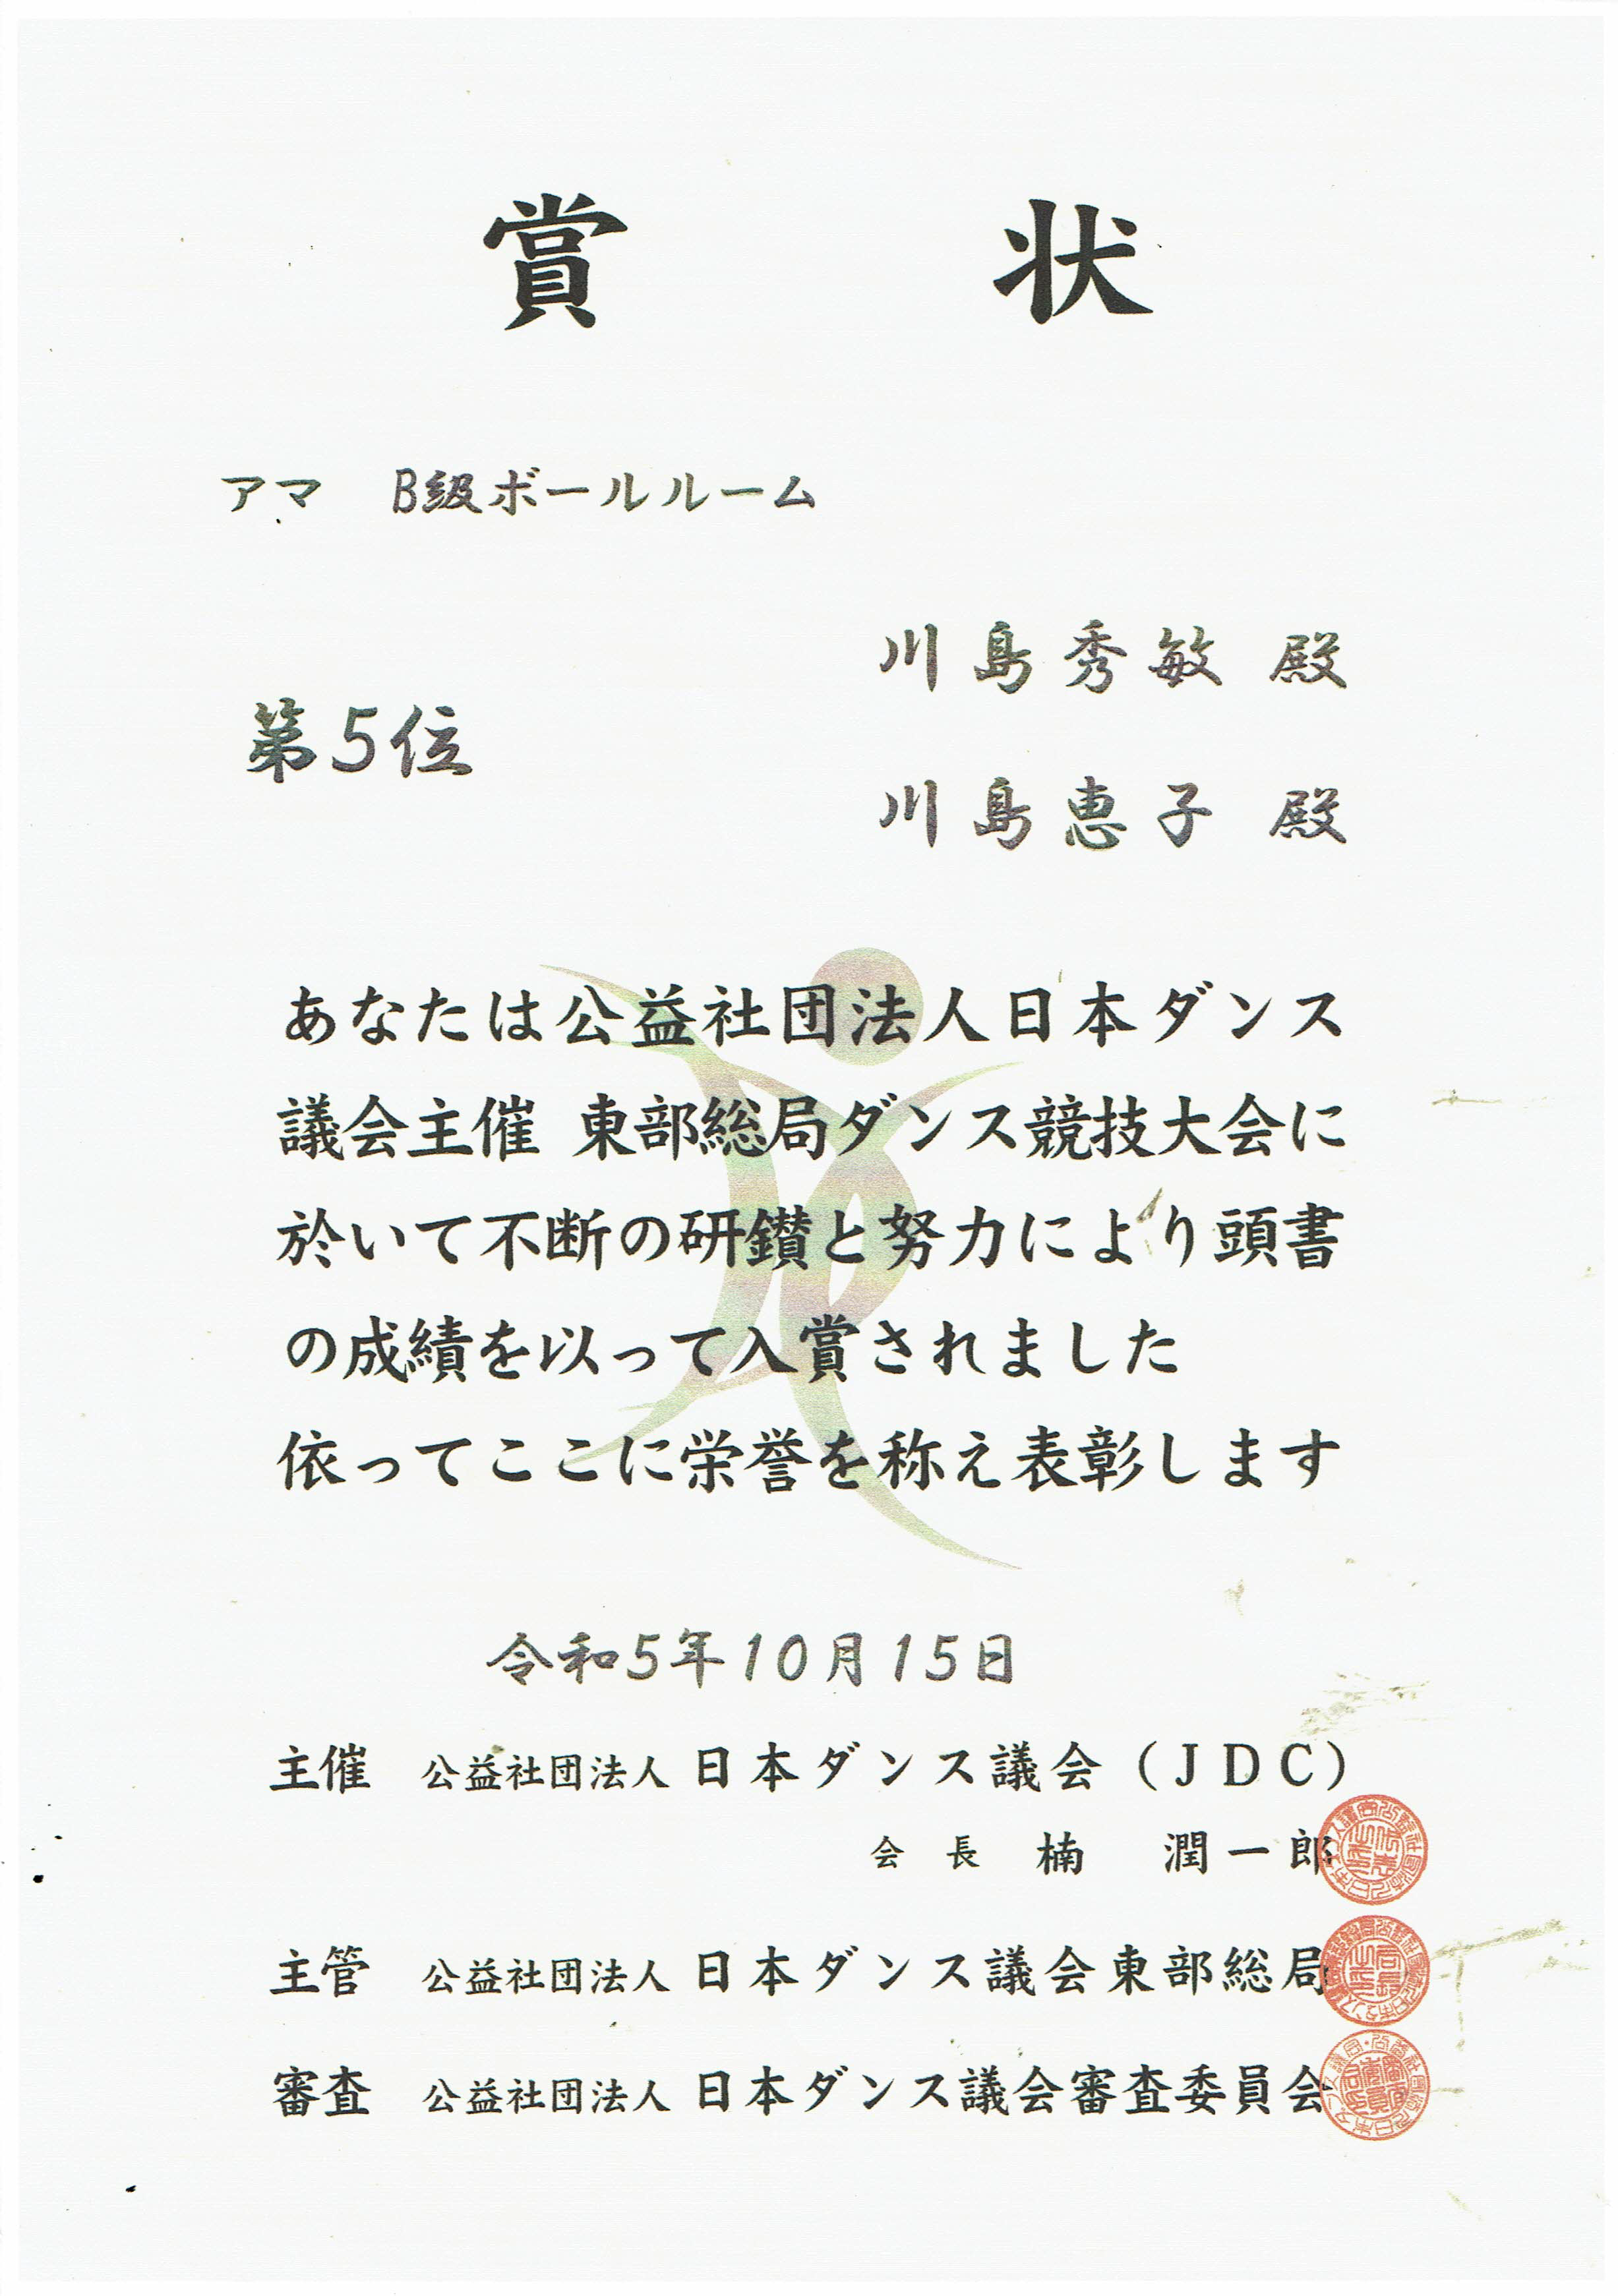 賞状
アマ　B級ボールルーム
川島秀敏 殿
第5位
川島恵子 殿
あなたは公益社団法人日本ダンス
議会主催 東部総局ダンス競技大会に
於いて不断の研鑚と努力により頭書
の成績を以って入賞されました
依ってここに栄誉を称え表彰します
令和5年10月15日
主催　公益社団法人 日本ダンス議会（JDC）
会長　楠　潤一郎
主管　公益社団法人 日本ダンス議会東部総局
審査　公益社団法人 日本ダンス議会審査委員会